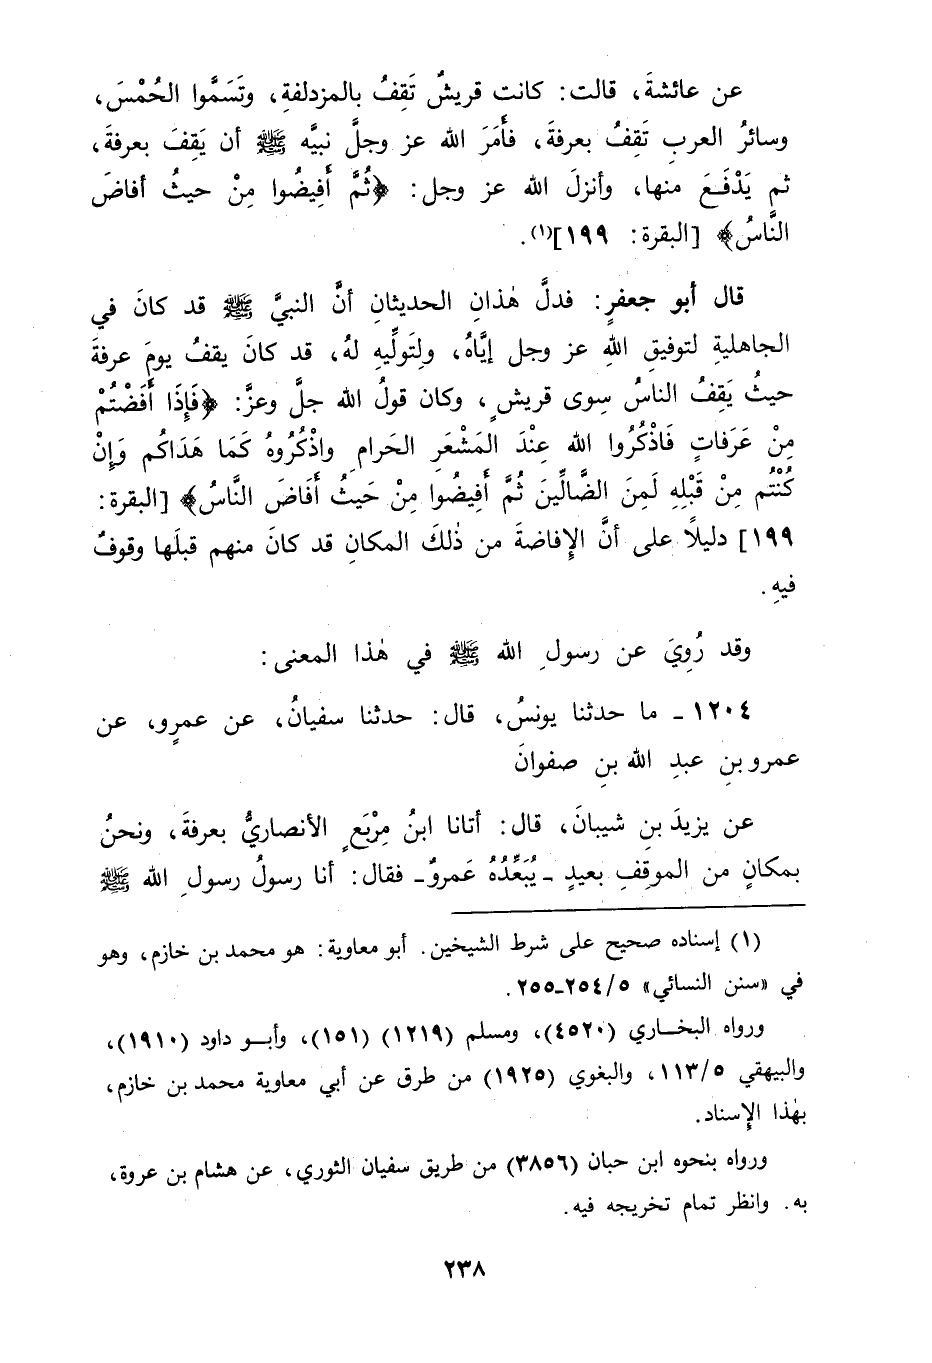 عن عائشةَ، قالت: كانت قريشٌ تَقِفُ بالمزدلفةِ، وتَسَمَّوا الحُمْسَ،
وسائرُ العربِ تَقِفُ بعرفةَ، فأَمَرَ الله عز وجلَّ نبيَّه ﷺ أن يَقِفَ بعرفةَ،
ثم يَدْفَعَ منها، وأنزلَ الله عز وجل: ﴿ثُمَّ أَفِيضُوا مِنْ حيثُ أفاضَ
النَّاسُ﴾ [البقرة: ١٩٩](١).
قال أبو جعفرٍ: فدلَّ هٰذانِ الحديثانِ أنَّ النبيَّ ﷺ قد كانَ في
الجاهليةِ لتوفيقِ اللهِ عز وجل إيَّاهُ، ولِتَولِّيهِ لهُ، قد كانَ يقفُ يومَ عرفةَ
حيثُ يَقِفُ الناسُ سِوى قريشٍ، وكان قولُ الله جلَّ وعزَّ: ﴿فَإِذَا أَفَضْتُمْ
مِنْ عَرَفاتٍ فَاذْكُرُوا الله عِنْدَ المَشْعَرِ الحَرامِ واذْكُرُوهُ كَمَا هَدَاكُم وَإِنْ
كُنْتُم مِنْ قَبْلِهِ لَمِنَ الضَّالِّينَ ثُمَّ أَفيضُوا مِنْ حَيثُ أَفَاضَ النَّاسُ﴾ [البقرة:
١٩٩] دليلاً على أنَّ الإفاضةَ من ذٰلكَ المكانِ قد كانَ منهم قبلَها وقوفٌ
فيهِ.
وقد رُوِيَ عن رسولِ الله ﷺ في هٰذا المعنى:
١٢٠٤ - ما حدثنا يونسُ، قال: حدثنا سفيانُ، عن عمرٍو، عن
عمرو بنِ عبدِ الله بنِ صفوانَ
عن يزيدَ بنِ شيبانَ، قال: أتانا ابنُ مِرْبَعٍ الأنصاريُّ بعرفةَ، ونحنُ
بمكانٍ من الموقِفِ بعيدٍ - يُبَعِّدُهُ عَمروٌ - فقال: أنا رسولُ رسولِ الله ﷺ
(١) إسناده صحيح على شرط الشيخين. أبو معاوية: هو محمد بن خازم، وهو
في «سنن النسائي» ٢٥٤/٥-٢٥٥.
ورواه البخاري (٤٥٢٠)، ومسلم (١٢١٩) (١٥١)، وأبو داود (١٩١٠)،
والبيهقي ١١٣/٥، والبغوي (١٩٢٥) من طرق عن أبي معاوية محمد بن خازم،
بهٰذا الإسناد.
ورواه بنحوه ابن حبان (٣٨٥٦) من طريق سفيان الثوري، عن هشام بن عروة،
به. وانظر تمام تخريجه فيه.
٢٣٨